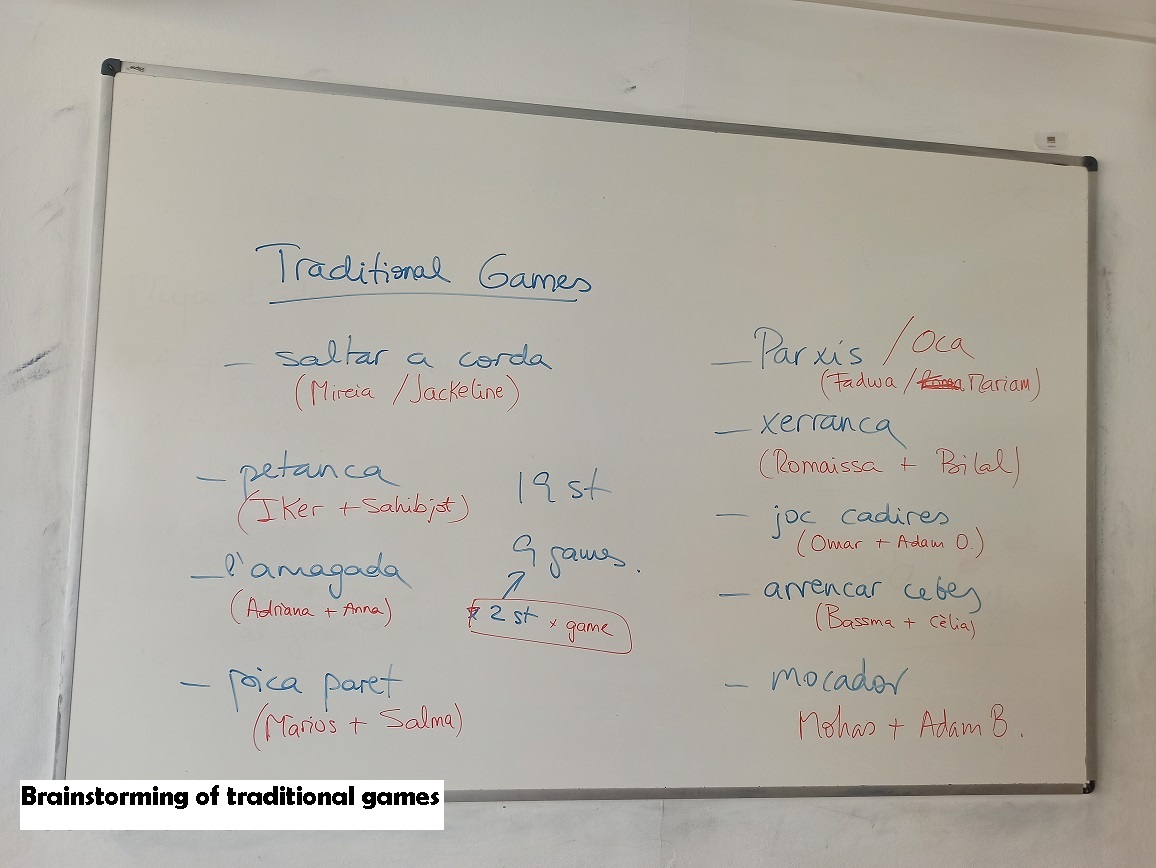 Traditional Games
– saltar a corda
(Mireia / Jackeline)
– petanca
(Iker + Sahibjot)
– l'amagada
(Adriana + Anna)
– pica paret
(Marius + Salma)
19 st
9 games.
2 st x game
– Parxis / Oca
(Fadwa / Mariam)
– xerranca
(Romaissa + Bilal)
– joc cadires
(Omar + Adam O.)
– arrencar cebes
(Bassma + Cèlia)
– mocador
Mohas + Adam B.
Brainstorming of traditional games